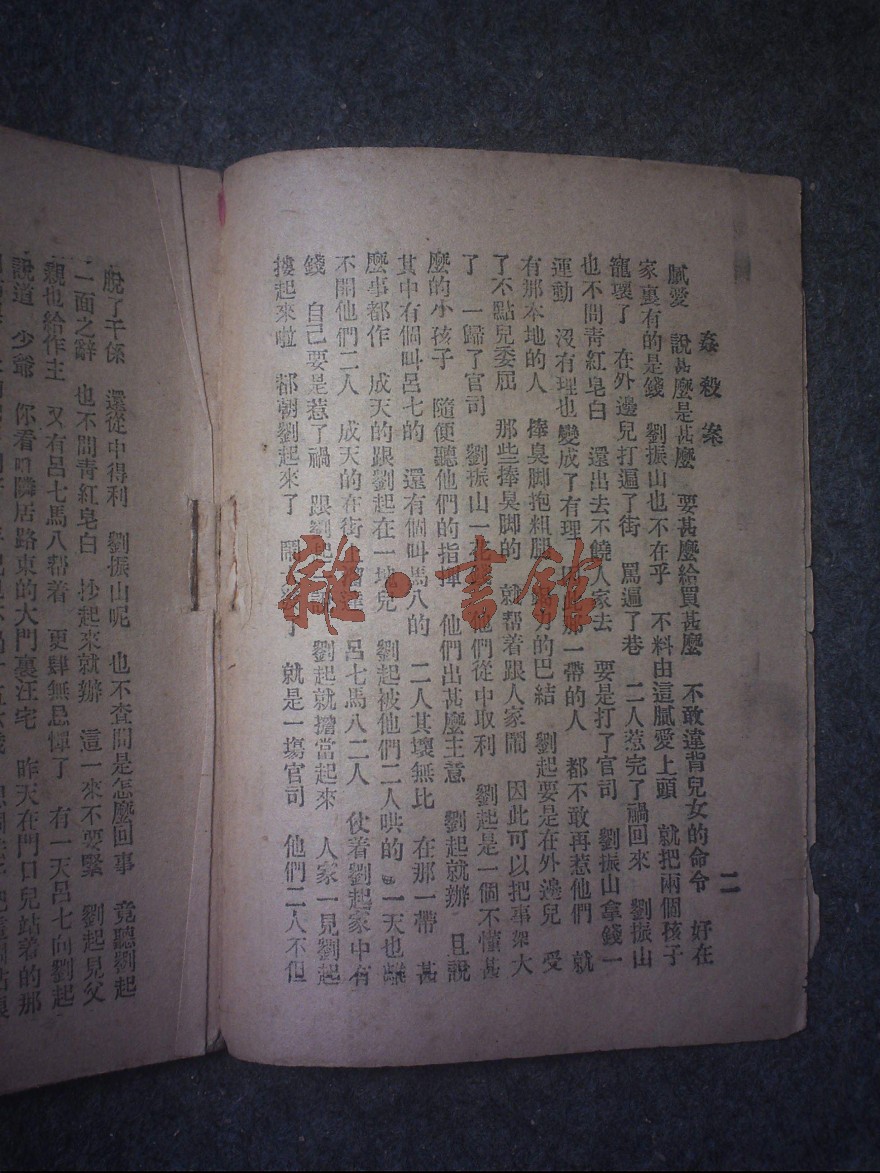 姦殺案
二
膩愛 說甚麽是甚麽 要甚麽給買甚麽 不敢違背兒女的命令 好在
家裏有的是錢 劉振山也不在乎 不料由這膩愛上頭 就把兩個孩子
寵壞了 在外邊兒打遍了街 罵遍了巷 二人惹完了禍回來 劉振山
也不問靑紅皂白 還出去不饒人家去 要是打了官司 劉振山拿錢一
運動 沒有理也變成了有理 那一帶的人 都不敢再惹他們 就
有那本地的人 捧臭脚抱粗腿 的巴結 劉起要是在外邊兒 受
了不點兒委屈 那些捧臭脚的 就帮着跟人家鬧 因此可以把事架大
了 一歸了官司 劉振山一花 他們從中取利 劉起是一個不懂甚
麽的小孩子 隨便聽他們的指揮 他們出甚麽主意 劉起就辦 且說
其中有個叫呂七的 還有個叫馬八的 二人其壞無比 在那一帶 甚
麽事都作 成天的跟劉起在一塊兒 劉起被他們二人哄的 一天也離
不開他們二人 成天的在街上 呂七馬八二人 仗着劉起家中有
錢 自己要是惹了禍 跟劉起一說 劉起就擔當起來 人家一見劉起
摟起來啦 都朝劉起來了 鬧 了 就是一塲官司 他們二人不但
脫了干係 還從中得利 劉振山呢 也不查問是怎麽回事 竟聽劉起
一面之辭 也不問靑紅皂白 抄起來就辦 這一來不要緊 劉起見父
親也給作主 又有呂七馬八帮着 更肆無忌憚了 有一天呂七向劉起
說道 少爺 你看 隣居路東的大門裏汪宅 昨天在門口兒站着的那
雜·書館